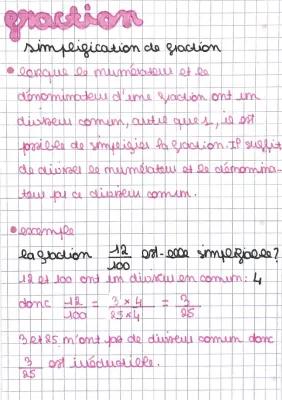 fraction
simplification de fraction
• lorsque le numérateur et le
dénominateur d'une fraction ont un
diviseur comun, autre que 1, il est
possible de simplifier la fraction. Il suffit
de diviser le numérateur et le dénomina-
teur par ce diviseur comun.
• exemple
la fraction 12/100 est-elle simplifiable?
12 et 100 ont un diviseur en comun: 4
donc 12/100 = 3×4/25×4 = 3/25
3 et 25 n'ont pas de diviseur comun donc
3/25 est irréductible.